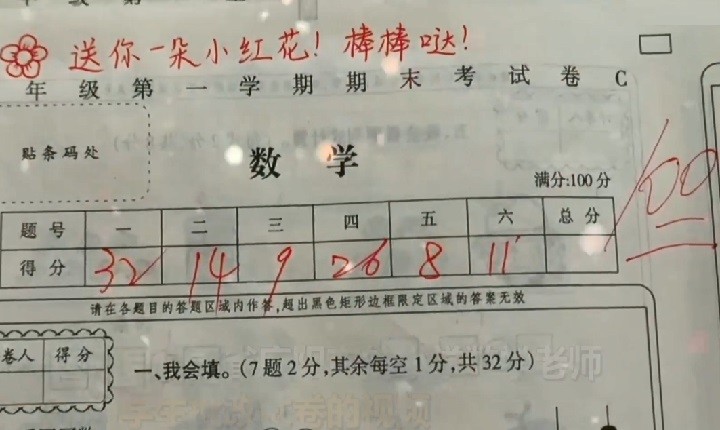 送你一朵小红花！棒棒哒！
年级第一学期期末考试卷C
贴条码处
数学
满分:100分
100
题号 一 二 三 四 五 六 总分
得分 32 14 9 26 8 11
请在各题目的答题区域内作答,超出黑色矩形边框限定区域的答案无效
卷人 得分
一、我会填。(7题2分,其余每空1分,共32分)
老师